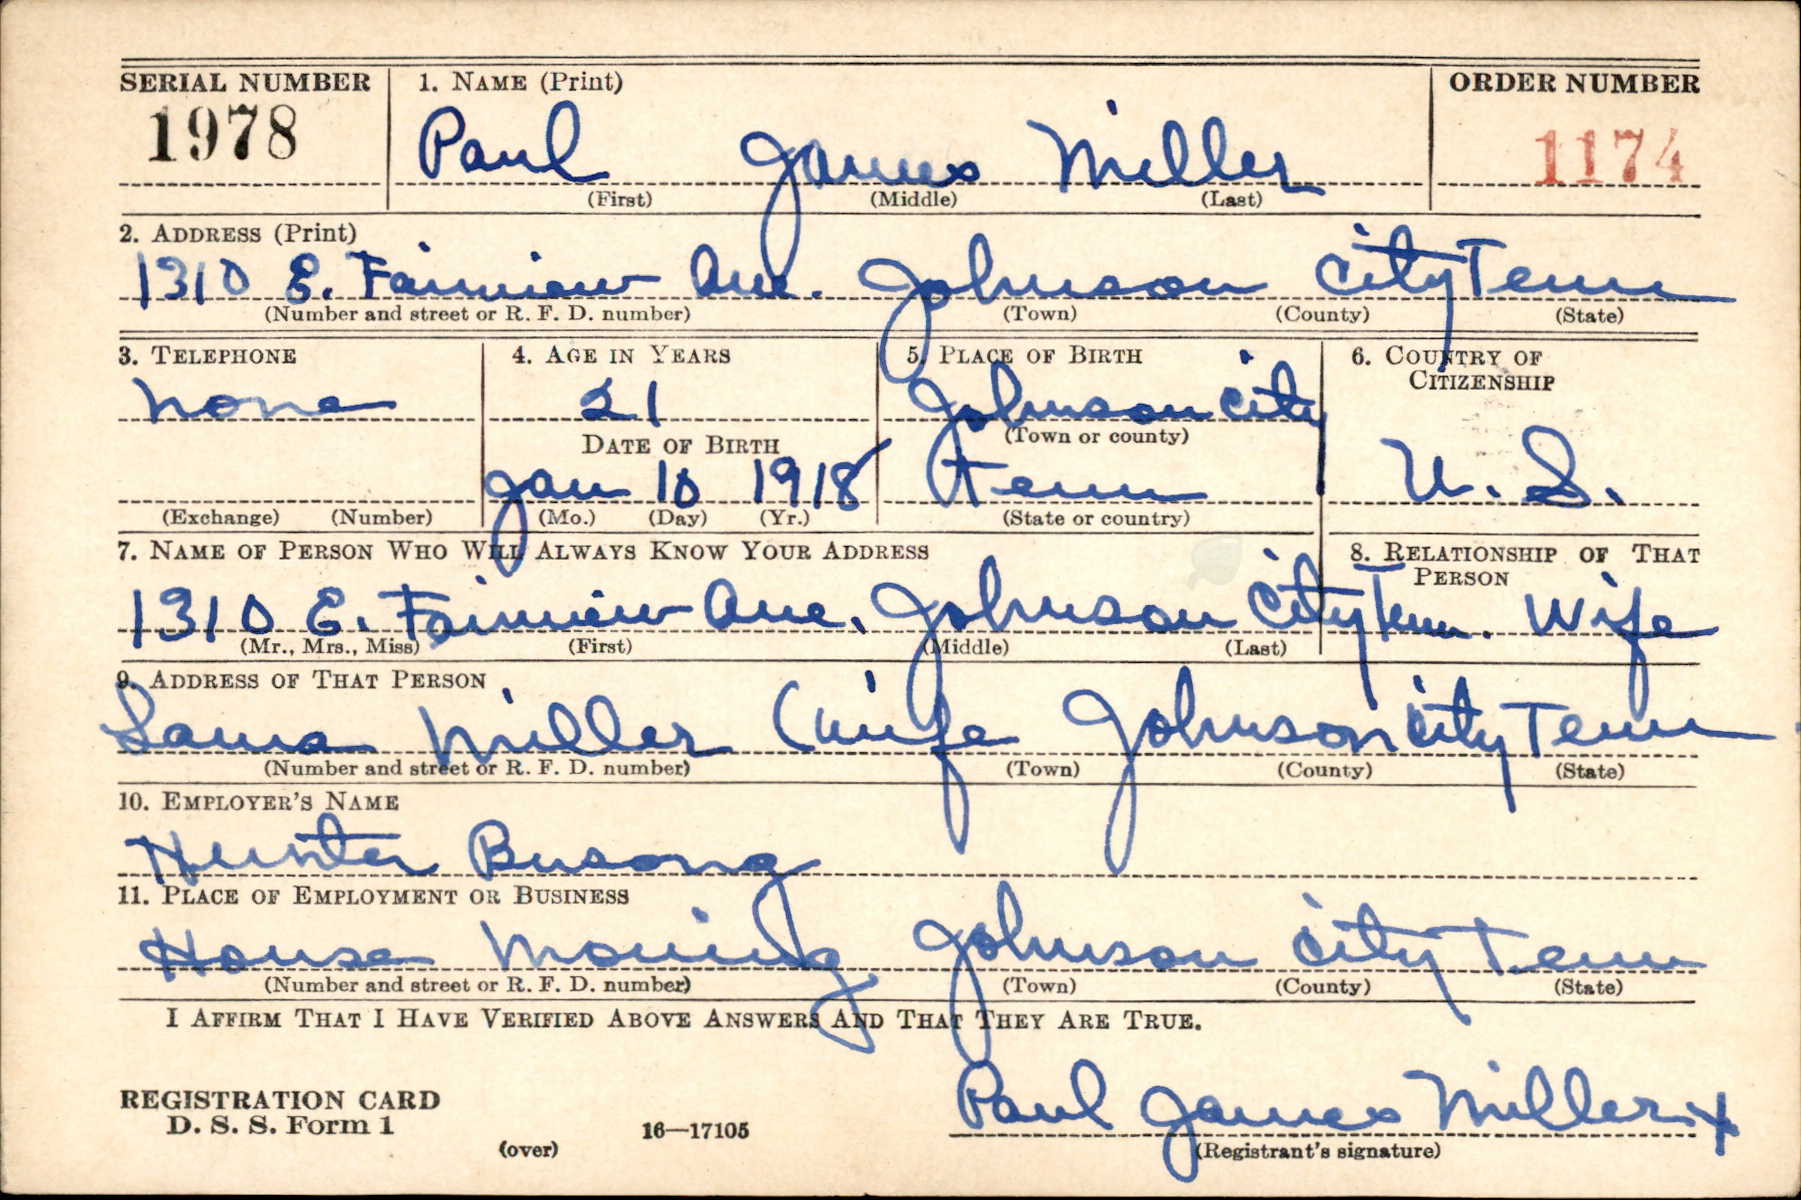 SERIAL NUMBER 1. NAME (Print) ORDER NUMBER
1978 Paul James Miller 1174
(First) (Middle) (Last)
2. ADDRESS (Print)
1310 E. Fairview Ave. Johnson City Tenn
(Number and street or R. F. D. number) (Town) (County) (State)
3. TELEPHONE 4. AGE IN YEARS 5. PLACE OF BIRTH 6. COUNTRY OF
CITIZENSHIP
none 21 Johnson City
DATE OF BIRTH (Town or county)
Jan 10 1918 Tenn U. S.
(Exchange) (Number) (Mo.) (Day) (Yr.) (State or country)
7. NAME OF PERSON WHO WILL ALWAYS KNOW YOUR ADDRESS 8. RELATIONSHIP OF THAT
PERSON
1310 E. Fairview Ave. Johnson City Tenn. Wife
(Mr., Mrs., Miss) (First) (Middle) (Last)
9. ADDRESS OF THAT PERSON
Miller (wife Johnson City Tenn
(Number and street or R. F. D. number) (Town) (County) (State)
10. EMPLOYER'S NAME
Hunter Busong
11. PLACE OF EMPLOYMENT OR BUSINESS
House Moving, Johnson City Tenn
(Number and street or R. F. D. number) (Town) (County) (State)
I AFFIRM THAT I HAVE VERIFIED ABOVE ANSWERS AND THAT THEY ARE TRUE.
REGISTRATION CARD Paul James Miller x
D. S. S. Form 1 16—17105
(over) (Registrant's signature)